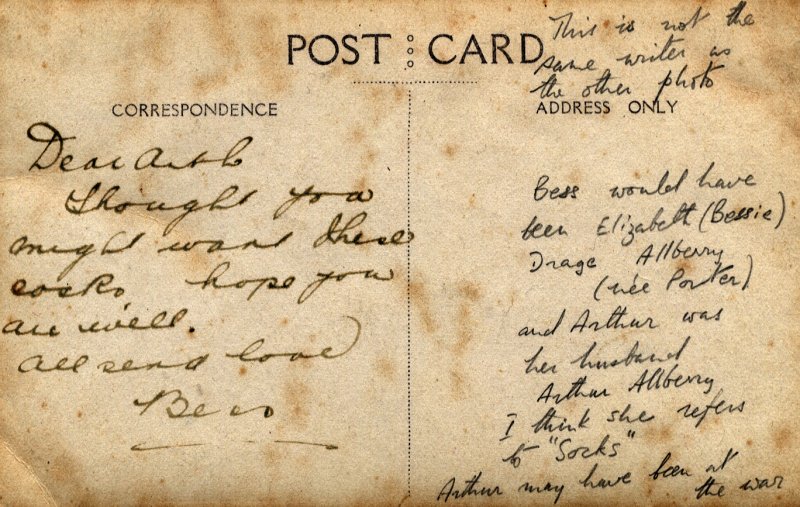 POST CARD
CORRESPONDENCE
Dear Arth
Thought you
might want these
socks hope you
are well.
All send love
Bess
This is not the
same writer as
the other photo
ADDRESS ONLY
Bess would have
been Elizabeth (Bessie)
Drage Allberry
(née Porter)
and Arthur was
her husband
Arthur Allberry
I think she refers
to "Socks"
Arthur may have been at
the war